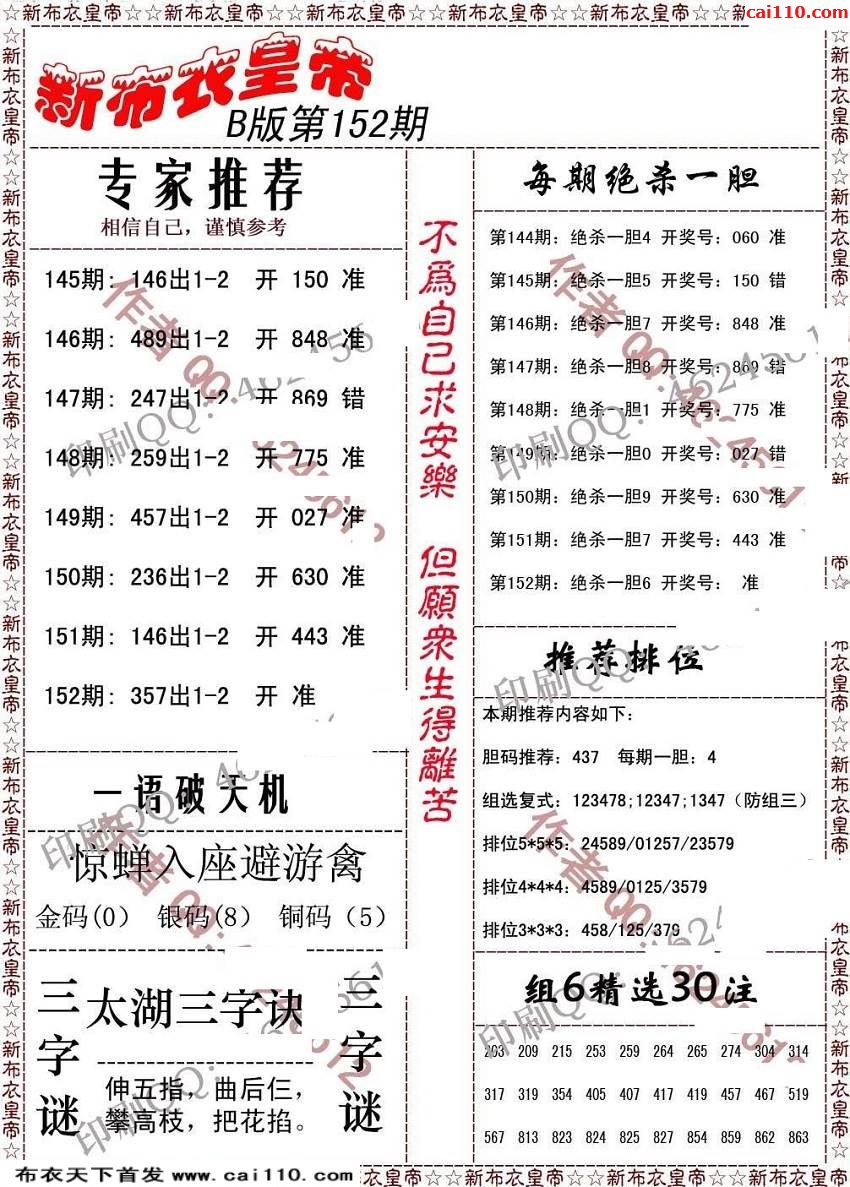 ☆☆新布衣皇帝☆☆新布衣皇帝☆☆新布衣皇帝☆☆新布衣皇帝☆☆新布衣皇帝☆☆新
cai110.com
新布衣皇帝
B版第152期
专家推荐
相信自己，谨慎参考
145期: 146出1-2 开 150 准
146期: 489出1-2 开 848 准
147期: 247出1-2 开 869 错
148期: 259出1-2 开 775 准
149期: 457出1-2 开 027 准
150期: 236出1-2 开 630 准
151期: 146出1-2 开 443 准
152期: 357出1-2 开 准
一语破天机
惊蝉入座避游禽
金码(0) 银码(8) 铜码（5）
三字谜
太湖三字诀
伸五指，曲后仨，
攀高枝，把花掐。
三字谜
不爲自己求安樂 但願衆生得離苦
每期绝杀一胆
第144期: 绝杀一胆4 开奖号: 060 准
第145期: 绝杀一胆5 开奖号: 150 错
第146期: 绝杀一胆7 开奖号: 848 准
第147期: 绝杀一胆8 开奖号: 869 错
第148期: 绝杀一胆1 开奖号: 775 准
第149期: 绝杀一胆0 开奖号: 027 错
第150期: 绝杀一胆9 开奖号: 630 准
第151期: 绝杀一胆7 开奖号: 443 准
第152期: 绝杀一胆6 开奖号: 准
推荐排位
本期推荐内容如下:
胆码推荐: 437 每期一胆: 4
组选复式: 123478;12347;1347（防组三）
排位5*5*5: 24589/01257/23579
排位4*4*4: 4589/0125/3579
排位3*3*3: 458/125/379
组6精选30注
203 209 215 253 259 264 265 274 304 314
317 319 354 405 407 417 419 457 467 519
567 813 823 824 825 827 854 859 862 863
布衣天下首发 www.cai110.com
☆新布衣皇帝☆☆新布衣皇帝☆☆新布衣皇帝☆☆新布衣皇帝☆☆
作者QQ:
印刷QQ: